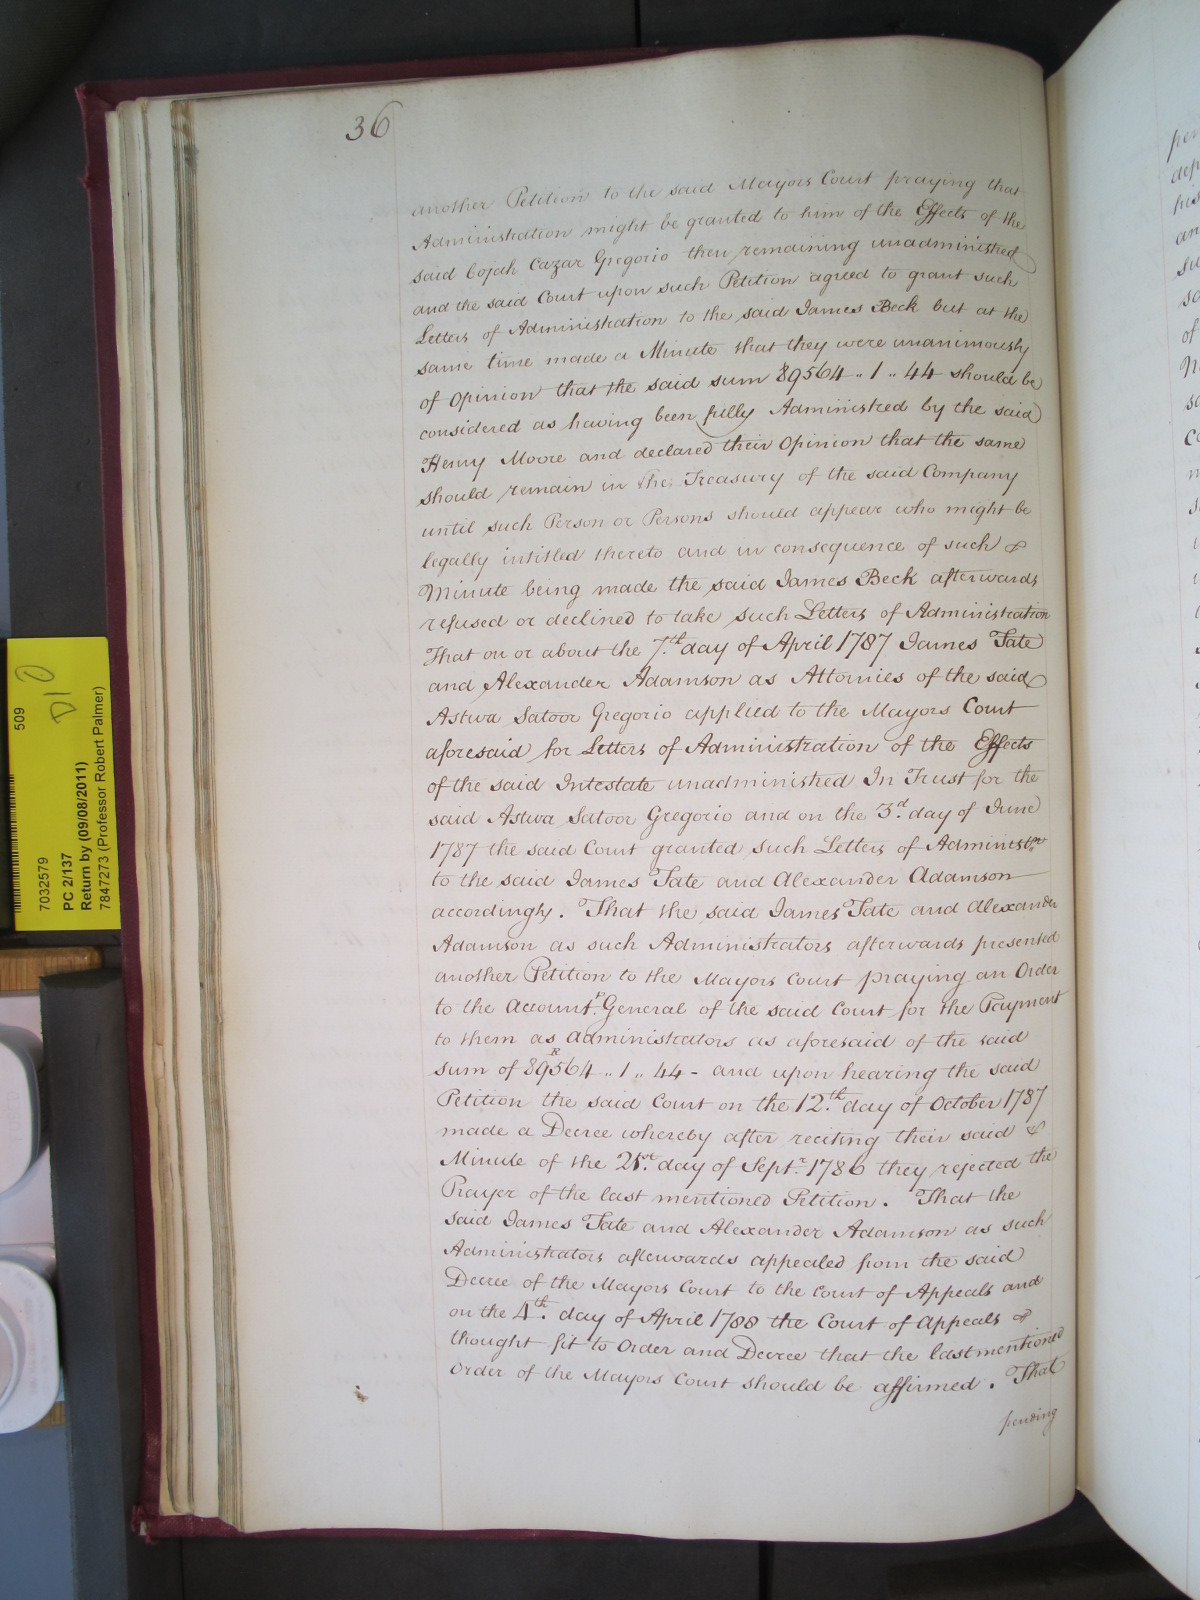 36
another Petition to the said Mayors Court praying that
Administration might be granted to him of the Effects of the
said Cojah Cazar Gregorio then remaining unadministred
and the said Court upon such Petition agreed to grant such
Letters of Administration to the said James Beck but at the
same time made a Minute that they were unanimously
of Opinion that the said sum 89564 .. 1 .. 44 should be
considered as having been fully Administred by the said
Henry Moore and declared their Opinion that the same
should remain in the Treasury of the said Company
until such Person or Persons should appear who might be
legally intitled thereto and in consequence of such &
Minute being made the said James Beck afterwards
refused or declined to take such Letters of Administration
That on or about the 7.th day of April 1787 James Tate
and Alexander Adamson as Attornies of the said
Astwa Satoor Gregorio applied to the Mayors Court
aforesaid for Letters of Administration of the Effects
of the said Intestate unadministred In Trust for the
said Astwa Satoor Gregorio and on the 3.d day of June
1787 the said Court granted such Letters of Administ.on
to the said James Tate and Alexander Adamson
accordingly. That the said James Tate and Alexander
Adamson as such Administrators afterwards presented
another Petition to the Mayors Court praying an Order
to the Account.t General of the said Court for the Payment
to them as Administrators as aforesaid of the said
R
sum of 89564 .. 1 .. 44 - and upon hearing the said
Petition the said Court on the 12.th day of October 1787
made a Decree whereby after reciting their said &
Minute of the 21.st day of Sept.r 1786 they rejected the
Prayer of the last mentioned Petition. That the
said James Tate and Alexander Adamson as such
Administrators afterwards appealed from the said
Decree of the Mayors Court to the Court of Appeals and
on the 4.th day of April 1788 the Court of Appeals &
thought fit to Order and Decree that the last mentioned
Order of the Mayors Court should be affirmed. That
pending
509
D10
7032579
PC 2/137
Return by (09/08/2011)
7847273 (Professor Robert Palmer)